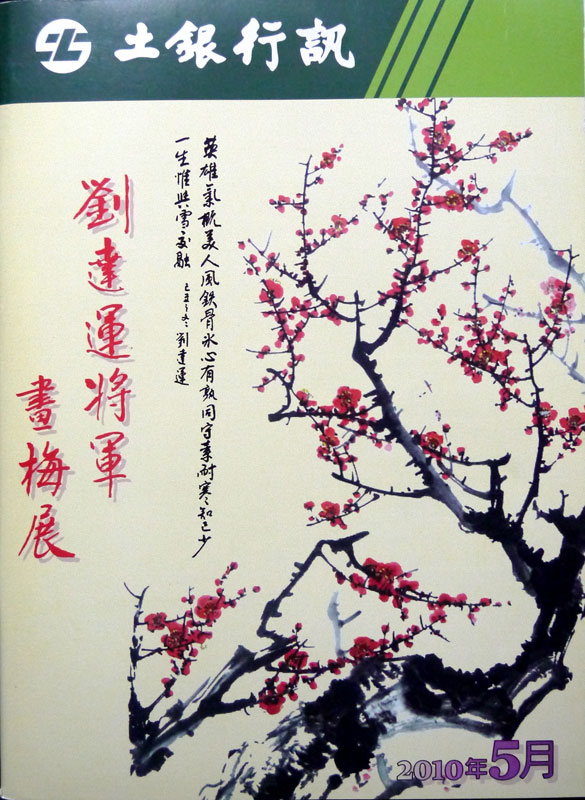 土銀行訊
劉達運將軍
畫梅展
英雄氣概美人風鉄骨氷心有孰同守素耐寒知己少
一生惟與雪交融 己丑之冬 劉達運
2010年5月